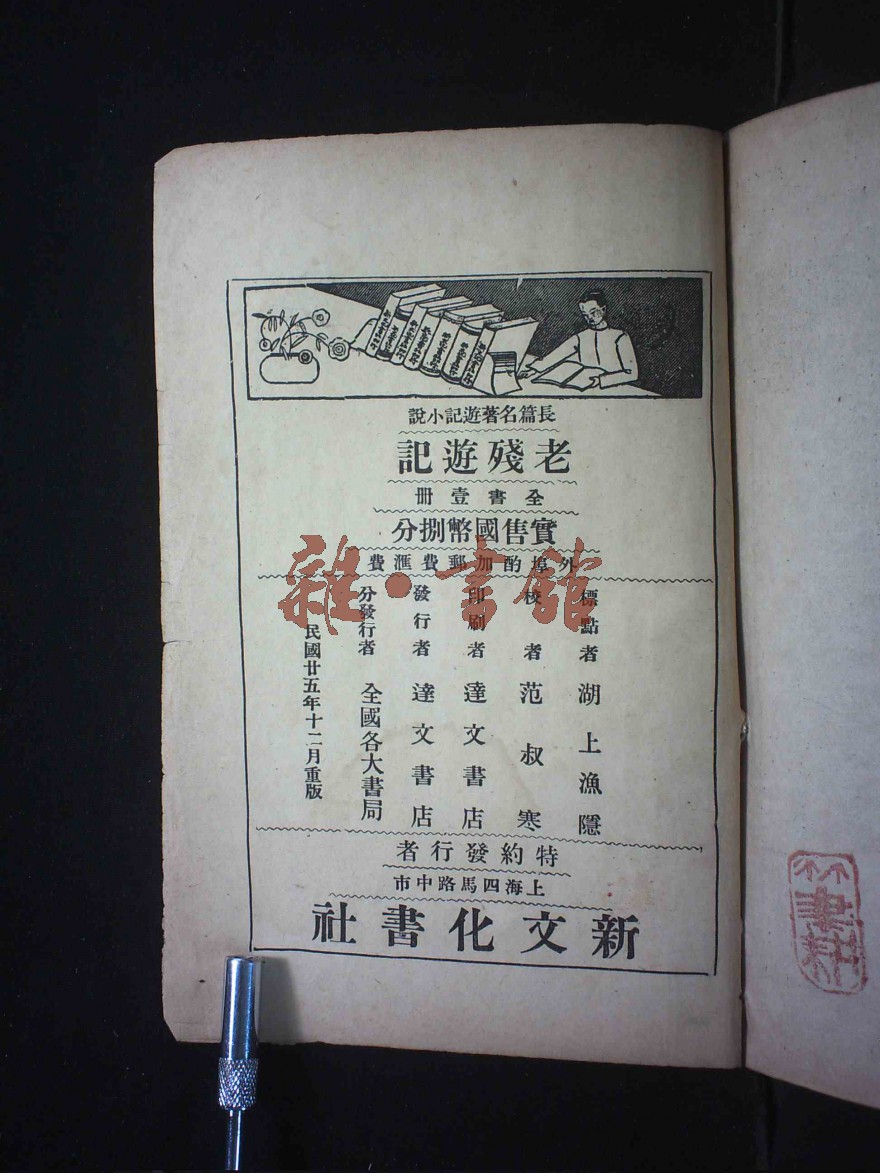 長篇名著遊記小說
老殘遊記
全書壹冊
實售國幣捌分
外埠酌加郵費滙費
標點者 湖上漁隱
校者 范叔寒
印刷者 達文書店
發行者 達文書店
分發行者 全國各大書局
民國廿五年十二月重版
特約發行者
上海四馬路中市
新文化書社
雜·書館